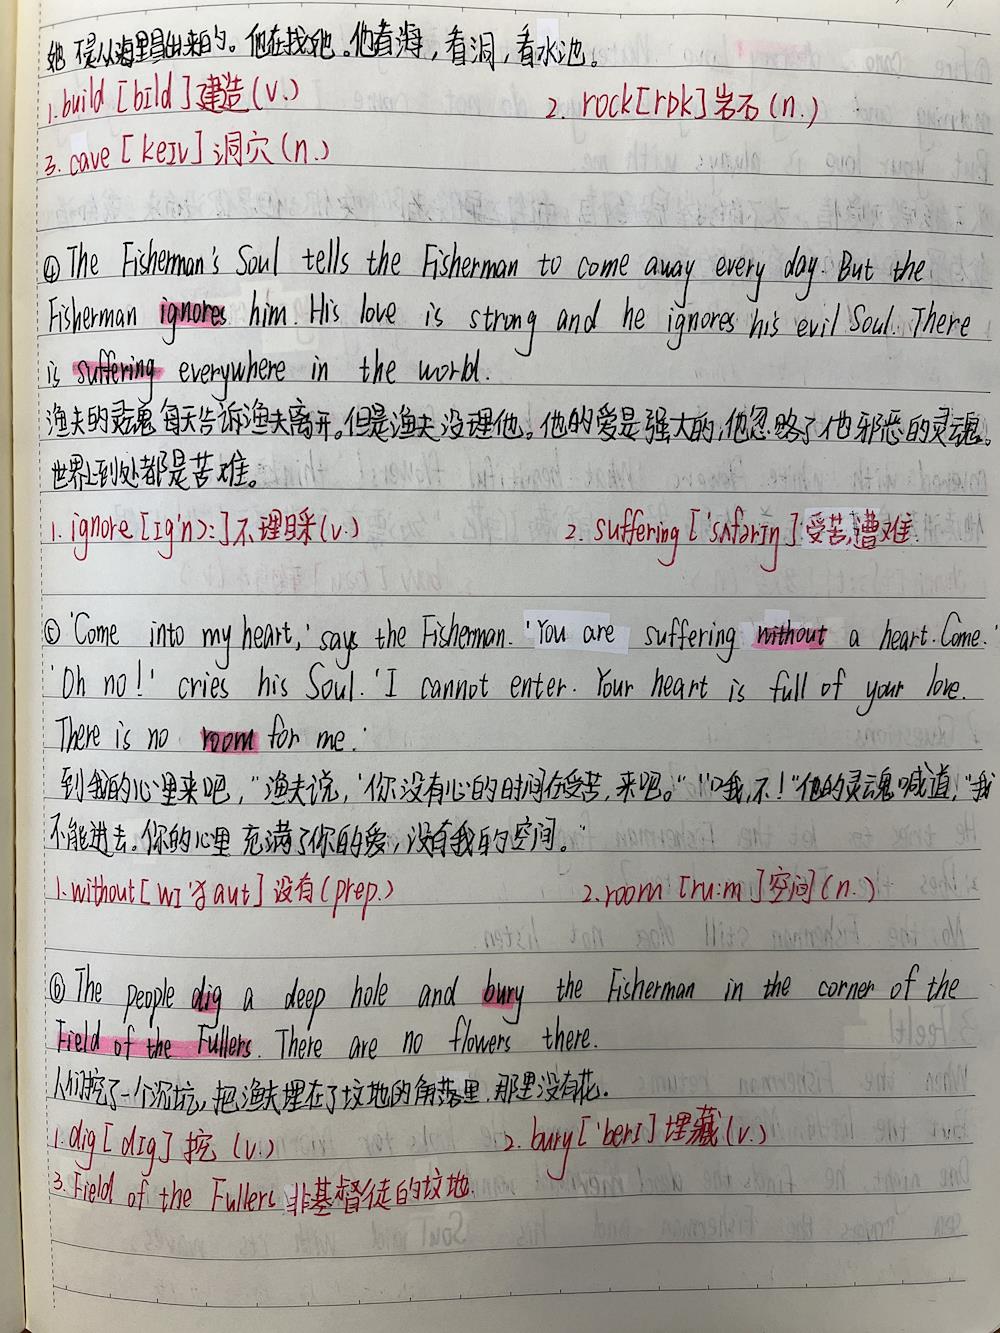 她不是从海里冒出来的。他在找她。他看海，看洞，看水池。
1. build [bɪld] 建造 (v.) 2. rock [rɒk] 岩石 (n.)
3. cave [keɪv] 洞穴 (n.)
④ The Fisherman's Soul tells the Fisherman to come away every day. But the
Fisherman ignores him. His love is strong and he ignores his evil Soul. There
is suffering everywhere in the world.
渔夫的灵魂每天告诉渔夫离开。但是渔夫没理他。他的爱是强大的，他忽略了他邪恶的灵魂。
世界上到处都是苦难。
1. ignore [ɪg'nɔ:] 不理睬 (v.) 2. suffering ['sʌfərɪŋ] 受苦，遭难
⑤ 'Come into my heart,' says the Fisherman. 'You are suffering without a heart. Come.'
'Oh no!' cries his Soul. 'I cannot enter. Your heart is full of your love.
There is no room for me.'
到我的心里来吧，"渔夫说，'你没有心的时间在受苦，来吧。""哦，不！"他的灵魂喊道，"我
不能进去。你的心里充满了你的爱，没有我的空间。"
1. without [wɪ'ðaut] 没有 (prep.) 2. room [ru:m] 空间 (n.)
⑥ The people dig a deep hole and bury the Fisherman in the corner of the
Field of the Fullers. There are no flowers there.
人们挖了一个沉坑，把渔夫埋在了坟地的角落里，那里没有花。
1. dig [dɪg] 挖 (v.) 2. bury ['berɪ] 埋藏 (v.)
3. Field of the Fullers 非基督徒的坟地.